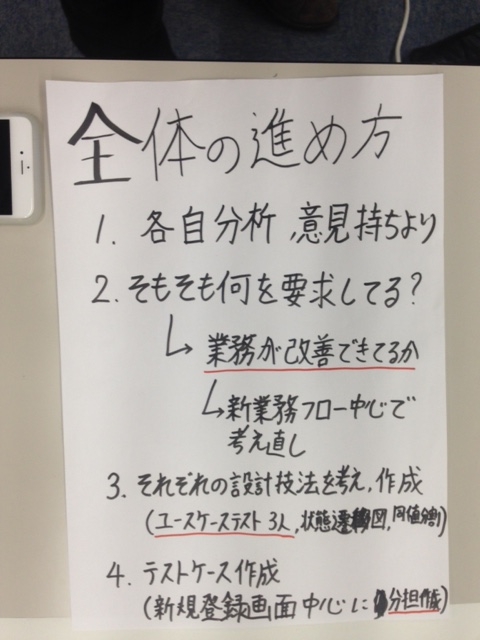 全体の進め方
1. 各自分析、意見持ちより
2. そもそも何を要求してる?
↳ 業務が改善できてるか
↳ 新業務フロー中心で
考え直し
3. それぞれの設計技法を考え、作成
(ユースケーステスト3人, 状態遷移図, 同値分割)
4. テストケース作成
(新規登録画面中心に分担作成)